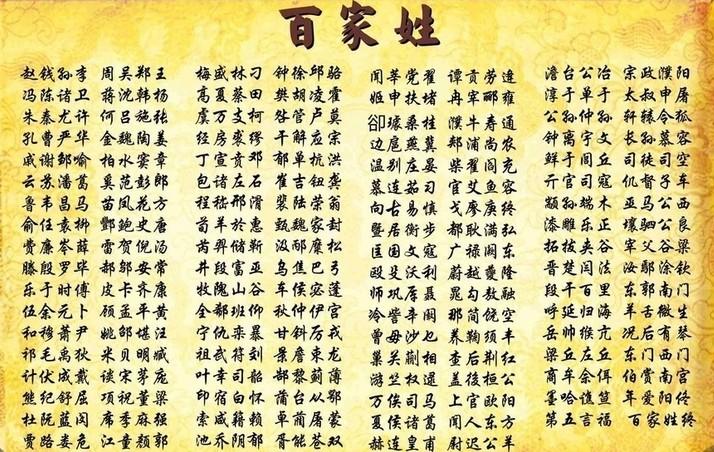 百家姓
赵钱孙李 周吴郑王 梅盛林刁 钟徐邱骆 闻莘党翟 谭贡劳逄 澹台公冶 宗政濮阳
冯陈诸卫 蒋沈韩杨 高夏蔡田 樊胡凌霍 姬申扶堵 冉宰郦雍 淳于单于 太叔申屠
朱秦尤许 何吕施张 虞万支柯 昝管卢莫 卻璩桑桂 濮牛寿通 公孙仲孙 轩辕令狐
孔曹严华 金魏陶姜 经房裘缪 干解应宗 边扈燕冀 郏浦尚农 钟离宇文 长孙慕容
戚谢邹喻 柏水窦章 丁宣贲邓 郁单杭洪 温别庄晏 柴瞿阎充 鲜于闾丘 司徒司空
云苏潘葛 奚范彭郎 包诸左石 崔吉钮龚 慕连茹习 宦艾鱼容 亓官司寇 仉督子车
鲁韦昌马 苗凤花方 程嵇邢滑 裴陆荣翁 向古易慎 戈廖庾终 颛孙端木 巫马公西
俞任袁柳 酆鲍史唐 荀羊於惠 甄麴家封 暨居衡步 都耿满弘 漆雕乐正 壤驷公良
费廉岑薛 雷贺倪汤 芮羿储靳 汲邴糜松 匡国文寇 广禄阙东 拓拔夹谷 宰父谷梁
滕殷罗毕 郝邬安常 井段富巫 乌焦巴弓 殴殳沃利 蔚越夔隆 晋楚闫法 汝鄢涂钦
乐于时傅 皮卞齐康 牧隗山谷 车侯宓蓬 师巩厍聂 晁勾敖融 段干百里 东郭南门
伍余元卜 顾孟平黄 全郗班仰 秋仲伊宫 冷訾辛阚 那简饶空 呼延归海 羊舌微生
和穆萧尹 姚邵堪汪 宁仇栾暴 甘钭厉戎 曾毋沙乜 养鞠须丰 岳帅缑亢 况后有琴
祁毛禹狄 米贝明臧 祖武符刘 景詹束龙 巢关蒯相 查后荆红 梁丘左丘 东门西门
计伏成戴 谈宋茅庞 叶幸司韶 郜黎蓟薄 游竺权逯 盖益桓公 商牟佘佴 伯赏南宫
熊纪舒屈 项祝董梁 印宿白怀 蒲台从鄂 万俟司马 上官欧阳 墨哈谯笪 年爱阳佟
杜阮蓝闵 席季麻强 索咸籍赖 卓蔺屠蒙 夏侯诸葛 闻人东方 第五言福 百家姓终
贾路娄危 江童颜郭 池乔阴郁 胥能苍双 赫连皇甫 尉迟公羊